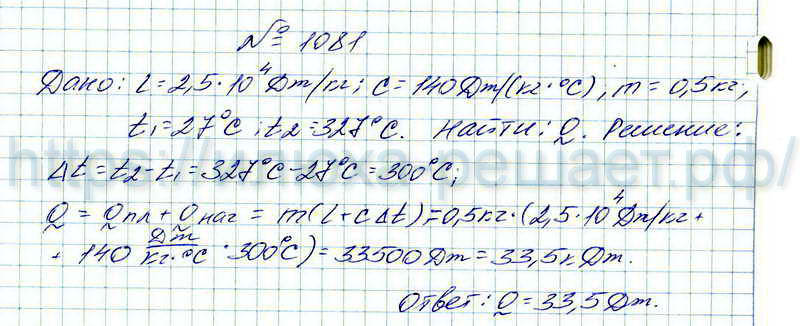 № 1081
Дано: L = 2,5·10⁴ Дж/кг; c = 140 Дж/(кг·°C), m = 0,5 кг,
t₁ = 27°C; t₂ = 327°C. Найти: Q. Решение:
Δt = t₂ - t₁ = 327°C - 27°C = 300°C;
Q = Qпл + Qнаг = m(L + cΔt) = 0,5 кг·(2,5·10⁴ Дж/кг +
+ 140 Дж/кг·°C · 300°C) = 33500 Дж = 33,5 кДж.
Ответ: Q = 33,5 Дж.